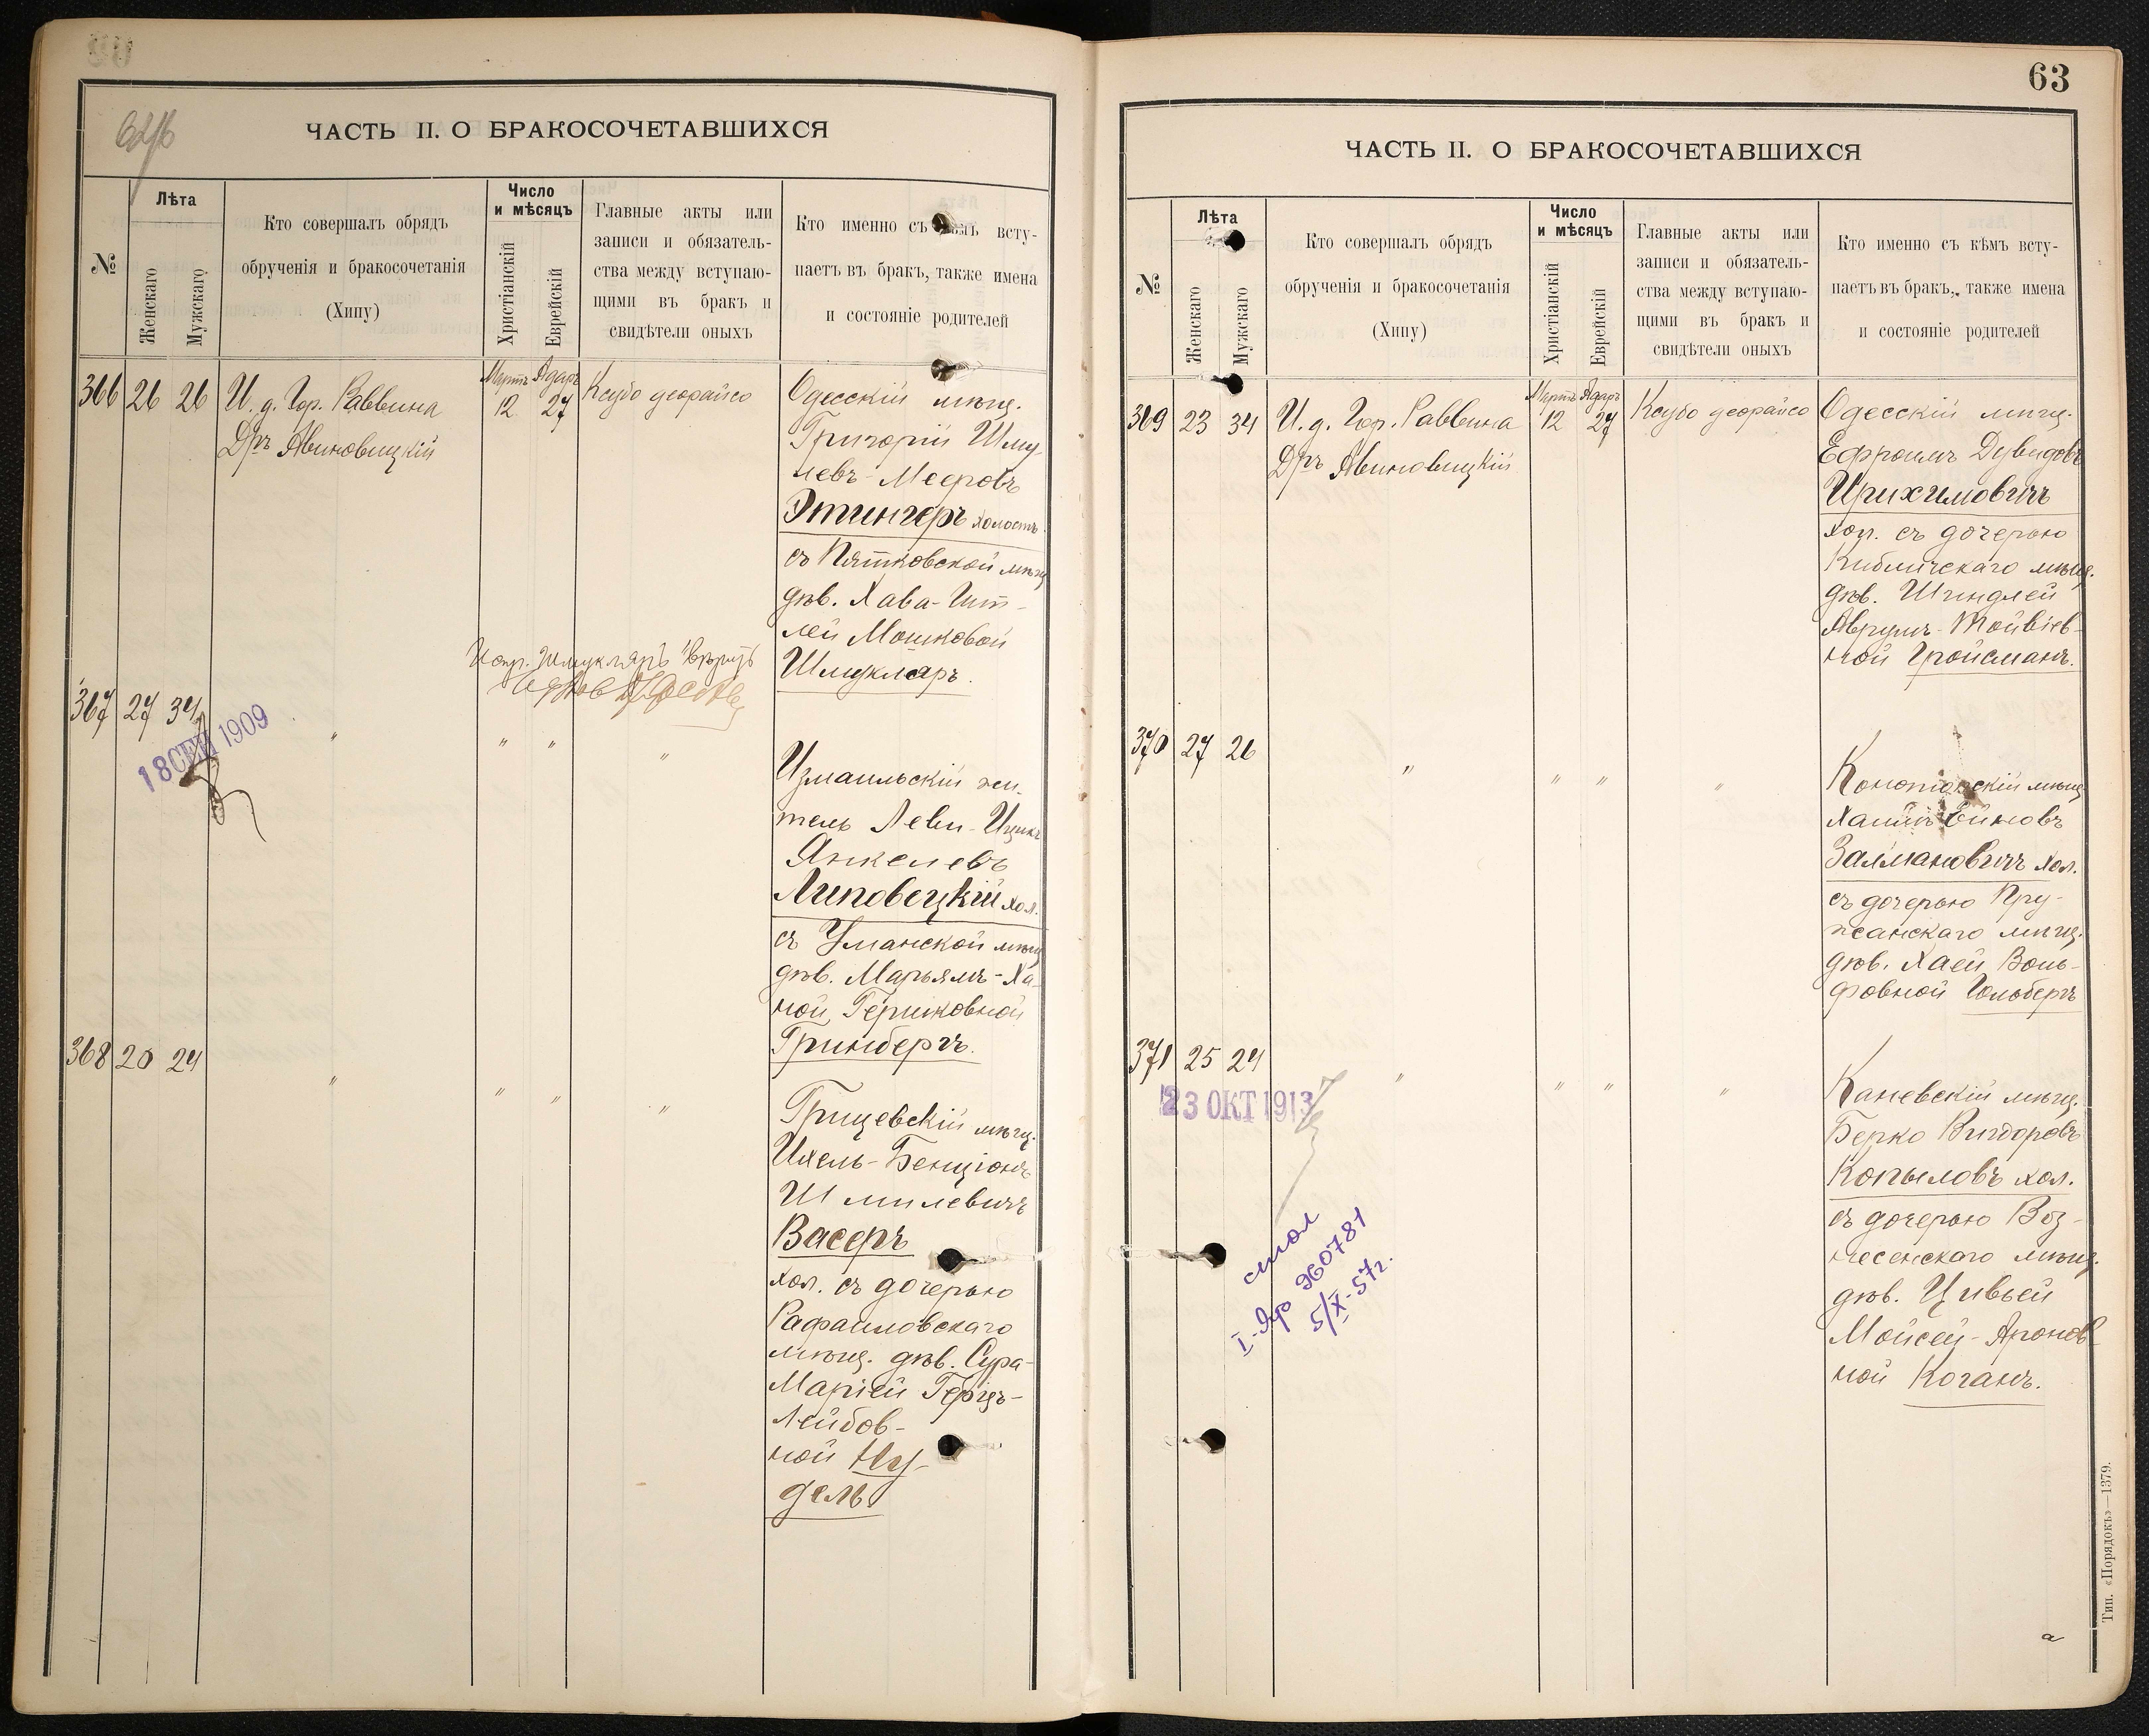 62
ЧАСТЬ II. О БРАКОСОЧЕТАВШИХСЯ
№
Лѣта
Женскаго
Мужскаго
Кто совершалъ обрядъ
обрученія и бракосочетанія
(Хипу)
Число
и мѣсяцъ
Христіанскій
Еврейскій
Главные акты или
записи и обязатель-
ства между вступаю-
щими въ бракъ и
свидѣтели оныхъ
Кто именно съ кѣмъ всту-
паетъ въ бракъ, также имена
и состояніе родителей
366 26 26
И. д. Гор. Раввина
Дръ Авиновицкій
Мартъ Адаръ
12 27
Ксубо деорайсо
Одесскій мѣщ.
Григорій Шму-
левъ-Мееровъ
Этингеръ холостъ
съ Пятковской мѣщ
дѣв. Хава-Гит-
лей Мошковой
Шмукляръ.
Испр. Шмукляръ вѣрить
367 27 34
18 СЕН 1909
" " " "
Измаильскій жи-
тель Леви-Ицикъ
Янкелевъ
Липовецкій хол.
съ Уманской мѣщ
дѣв. Марьямъ-Ха-
ной Гершковной
Гринбергъ.
368 20 24
" " " "
Грицевскій мѣщ.
Ихель-Бенціонъ
Шмилевичъ
Васеръ
хол. съ дочерью
Рафаиловскаго
мѣщ. дѣв. Сура-
Маріей Герцъ-
Лейбов-
ной Ну-
дель
63
ЧАСТЬ II. О БРАКОСОЧЕТАВШИХСЯ
№
Лѣта
Женскаго
Мужскаго
Кто совершалъ обрядъ
обрученія и бракосочетанія
(Хипу)
Число
и мѣсяцъ
Христіанскій
Еврейскій
Главные акты или
записи и обязатель-
ства между вступаю-
щими въ бракъ и
свидѣтели оныхъ
Кто именно съ кѣмъ всту-
паетъ въ бракъ, также имена
и состояніе родителей
369 23 34
И. д. Гор. Раввина
Дръ Авиновицкій
Мартъ Адаръ
12 27
Ксубо деорайсо
Одесскій мѣщ.
Ефроимъ Дувидовъ
Ирихимовичъ
хол. съ дочерью
Кибличскаго мѣщ.
дѣв. Шендлей
Аврумъ-Тойвіев-
ной Гройсманъ.
370 27 26
" " " "
Конотопскій мѣщ
Хаимъ Ейновъ
Залмановичъ хол.
съ дочерью Пру-
жсанскаго мѣщ.
дѣв. Хаей Воль-
фовной Гольбергъ
371 25 24
23 ОКТ 1913
" " " "
Каневскій мѣщ.
Берко Вигдоровъ
Копыловъ хол.
съ дочерью Воз-
несенскаго мѣщ.
дѣв. Цивьей
Мойсей-Аронов-
ной Коганъ.
960781
5/X-57г.
Тип. «Порядокъ»—1379.